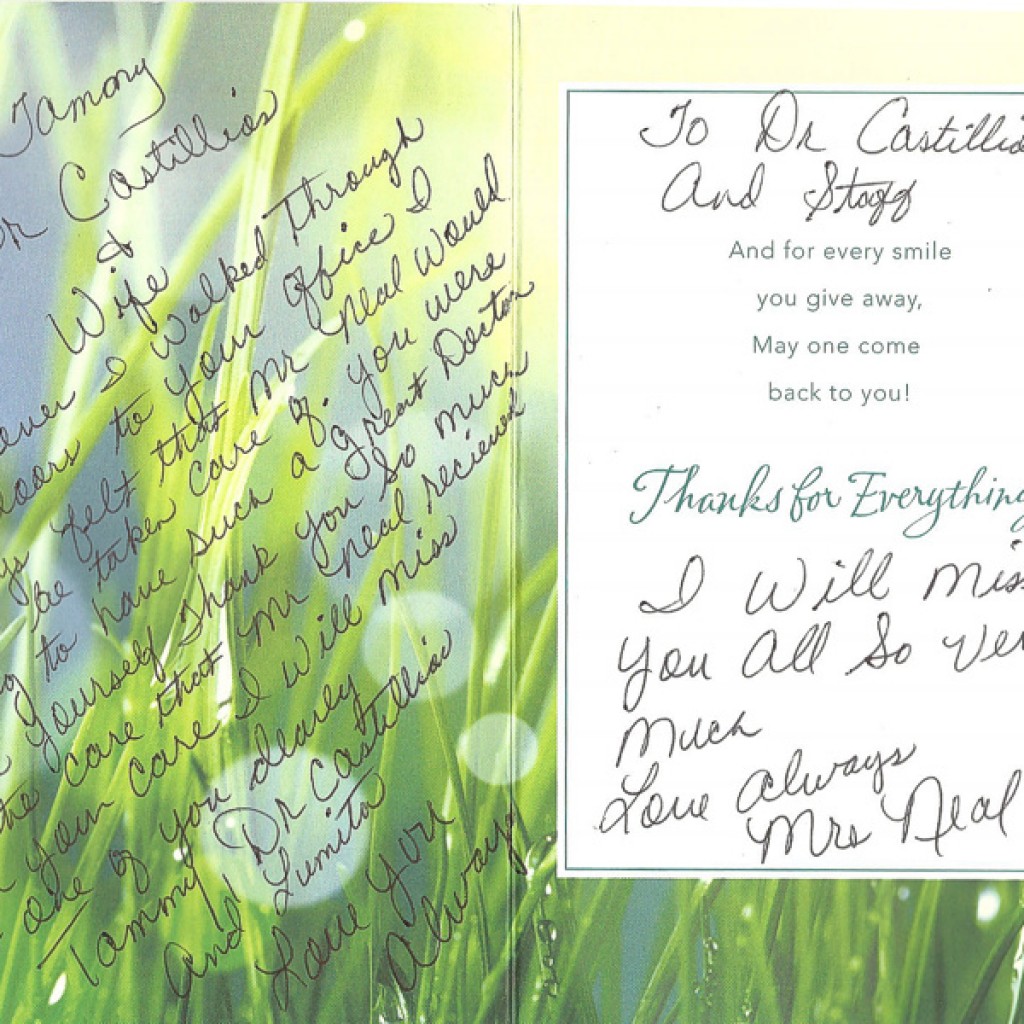 Tamony
Dr Castillios
&
Wife
ever I Walked Through
doors to your office I
ys felt that Mr Neal Would
be taken care of. You were
g to have such a great Doctor
yourself Thank you So much
the care that Mr Neal recieved
your care I Will miss
one of you dearly
Tammy Dr Castillio
And Lumita
Love You
Always
To Dr Castillio
And Staff
And for every smile
you give away,
May one come
back to you!
Thanks for Everything
I Will Mis
You All So Ver
Much
Love Always
Mrs Neal